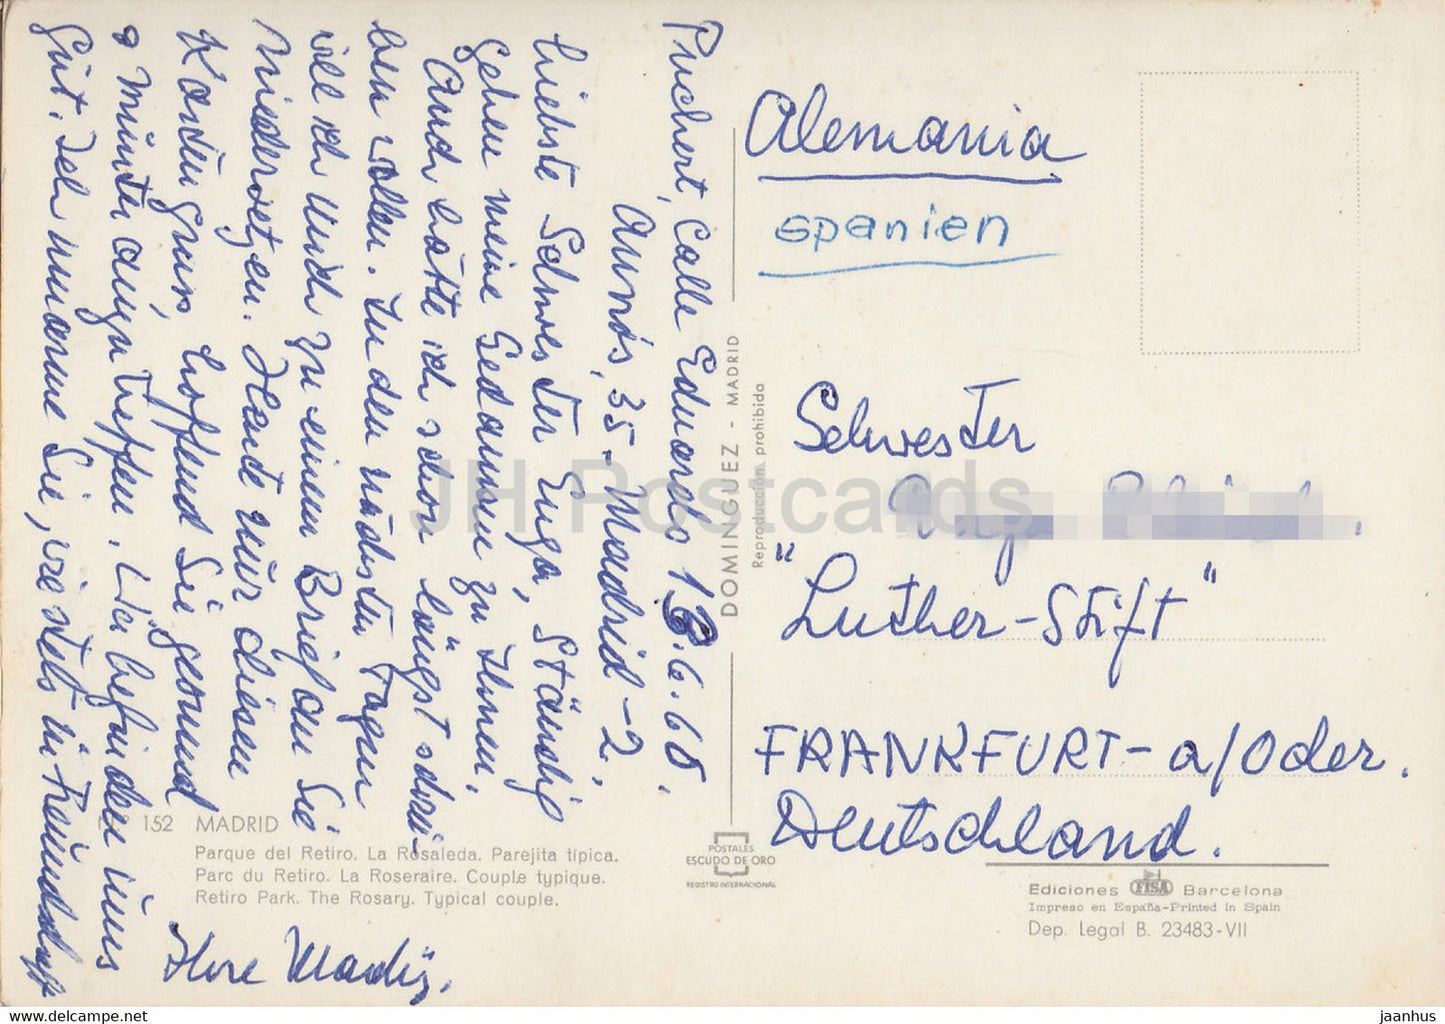 Puchert, Calle Eduardo
Aunós, 35 - Madrid - 2.
6.68.
Liebste Schwester Inga, Ständig
gehen meine Gedanken zu Ihnen.
Auch hätte ich schon längst schrei-
ben sollen. In den nächsten Tagen
will ich mich zu einem Brief an Sie
niedersetzen. Heute nur diesen
Kartengruss, hoffend Sie gesund
& munter anzutreffen. Wir befinden uns
gut. Ich umarme Sie, wie stets in Freundschaft
Ihre
Alemania
spanien
Schwester
"Luther-Stift"
FRANKFURT-a/Oder.
Deutschland.
DOMINGUEZ - MADRID
Reproducción prohibida
152 MADRID
Parque del Retiro. La Rosaleda. Parejita típica.
Parc du Retiro. La Roseraire. Couple typique.
Retiro Park. The Rosary. Typical couple.
POSTALES
ESCUDO DE ORO
REGISTRO INTERNACIONAL
Ediciones FISA Barcelona
Impreso en España-Printed in Spain
Dep. Legal B. 23483-VII
JH Postcards
www.delcampe.net
jaanhus